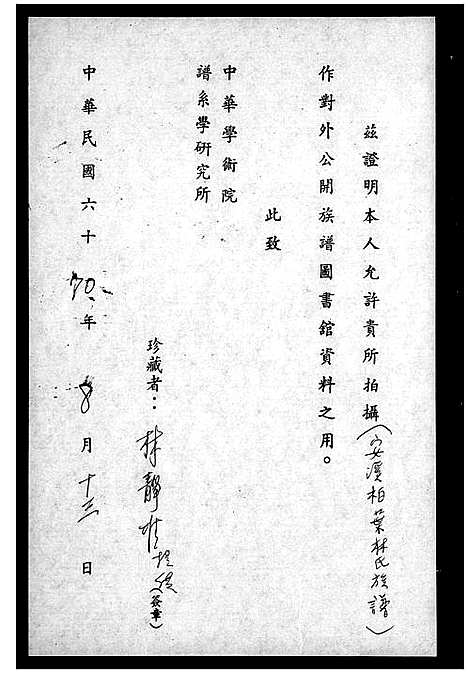 茲證明本人允許貴所拍攝(安溪柏葉林氏族譜)
作對外公開族譜圖書館資料之用。
此致
中華學術院
譜系學研究所
珍藏者：林靜 (簽章)
中華民國六十 70年 8月十三日